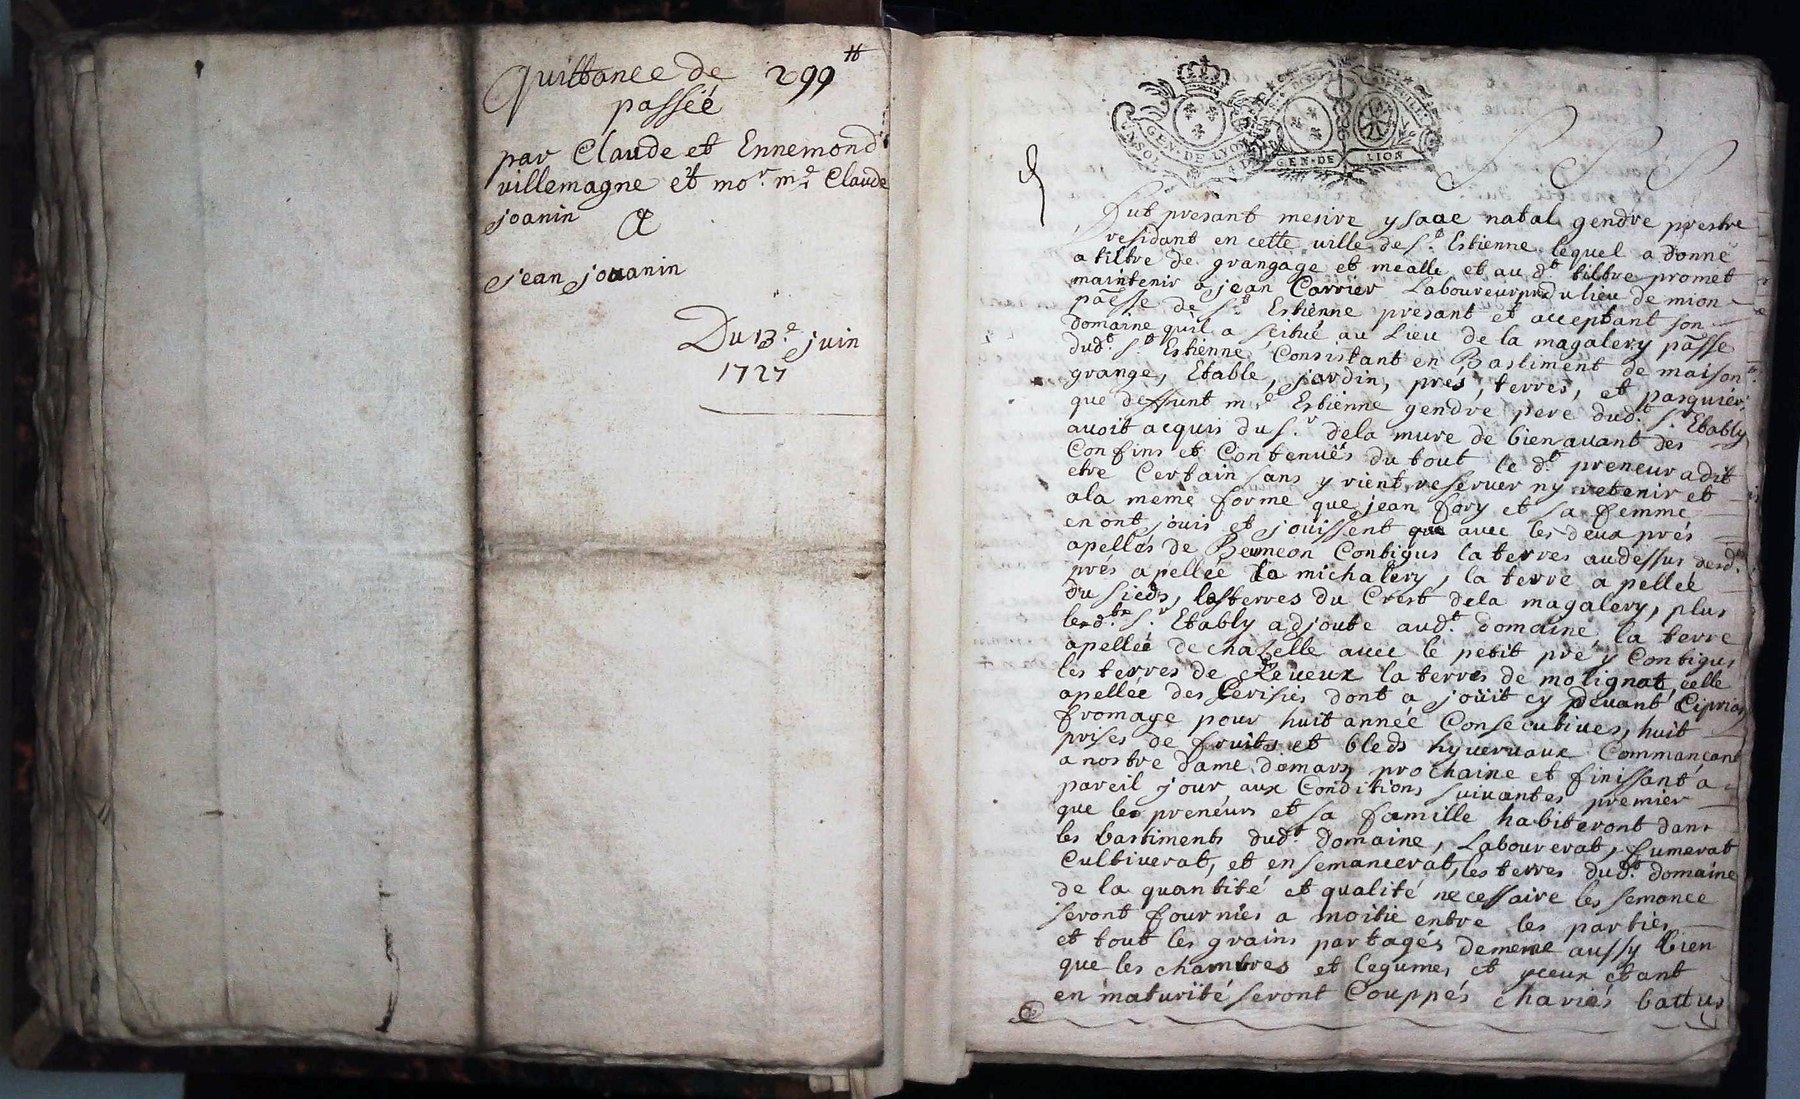 Quittance de 299 ₶
passéé
par Claude et Ennemond
villemagne et mor. md Claude
joanin
A
jean jouanin
Du 13e juin
1727
GEN. DE LYON
GEN. DE LION
fut presant mesire ysaac natal gendre prestre
residant en cette ville de St. Estienne lequel a donné
a tiltre de grangage et mealle et au dt tiltre promet
maintenir a jean Carrier Laboureur du lieu de mion
pāsse de St. Estienne présant et acceptant son
domaine quil a scitué au Lieu de la magalery pāsse
dudt. St. Estienne, Consistant en Bastiment de maison
grange, Etable, jardin, prés, terres, et pasquier
que deffunt mre Estienne gendre pere dudt. Sr. Etably
avoit acquis du Sr. dela mure de bien avant des
Confins et Contenuës du tout le dt. preneur a dit
etre Certain sans y rient reserver ny retenir et
ala meme forme que jean fary et sa femme
en ont jouis et joüissent avec les deux prés
apellés de Contigus la terres audessus desdts
prés apelléé la michalery, la terre apellée
du sieds, les terres du Crest dela magalery, plus
ledt. Sr. Etably adjoute audt. domaine, la terre
apellée de chazelle avec le petit pré y Contigus
les terres de la terres de molignat, celle
apellée des Cerisiés dont a joüit cy devant Ciprian
fromage pour huit année Consecutives, huit
prises de fruits et bleds hyvernaux Commançant
a nostre dame demars prochaine et finissant a
pareil jour aux Conditions suivantes premier
que les preneurs et sa famille habiteront dans
les bastiments dudt. Domaine, Labourerat, fumerat
Cultiverat, et ensemancerat, les terres dudt. domaine
de la quantité et qualité necessaire les semance
seront fournies a moitié entre les parties
et tout les grains partagés de meme aussy bien
que les chambres et legumes et yceux etant
en maturité seront Couppés chariés battus